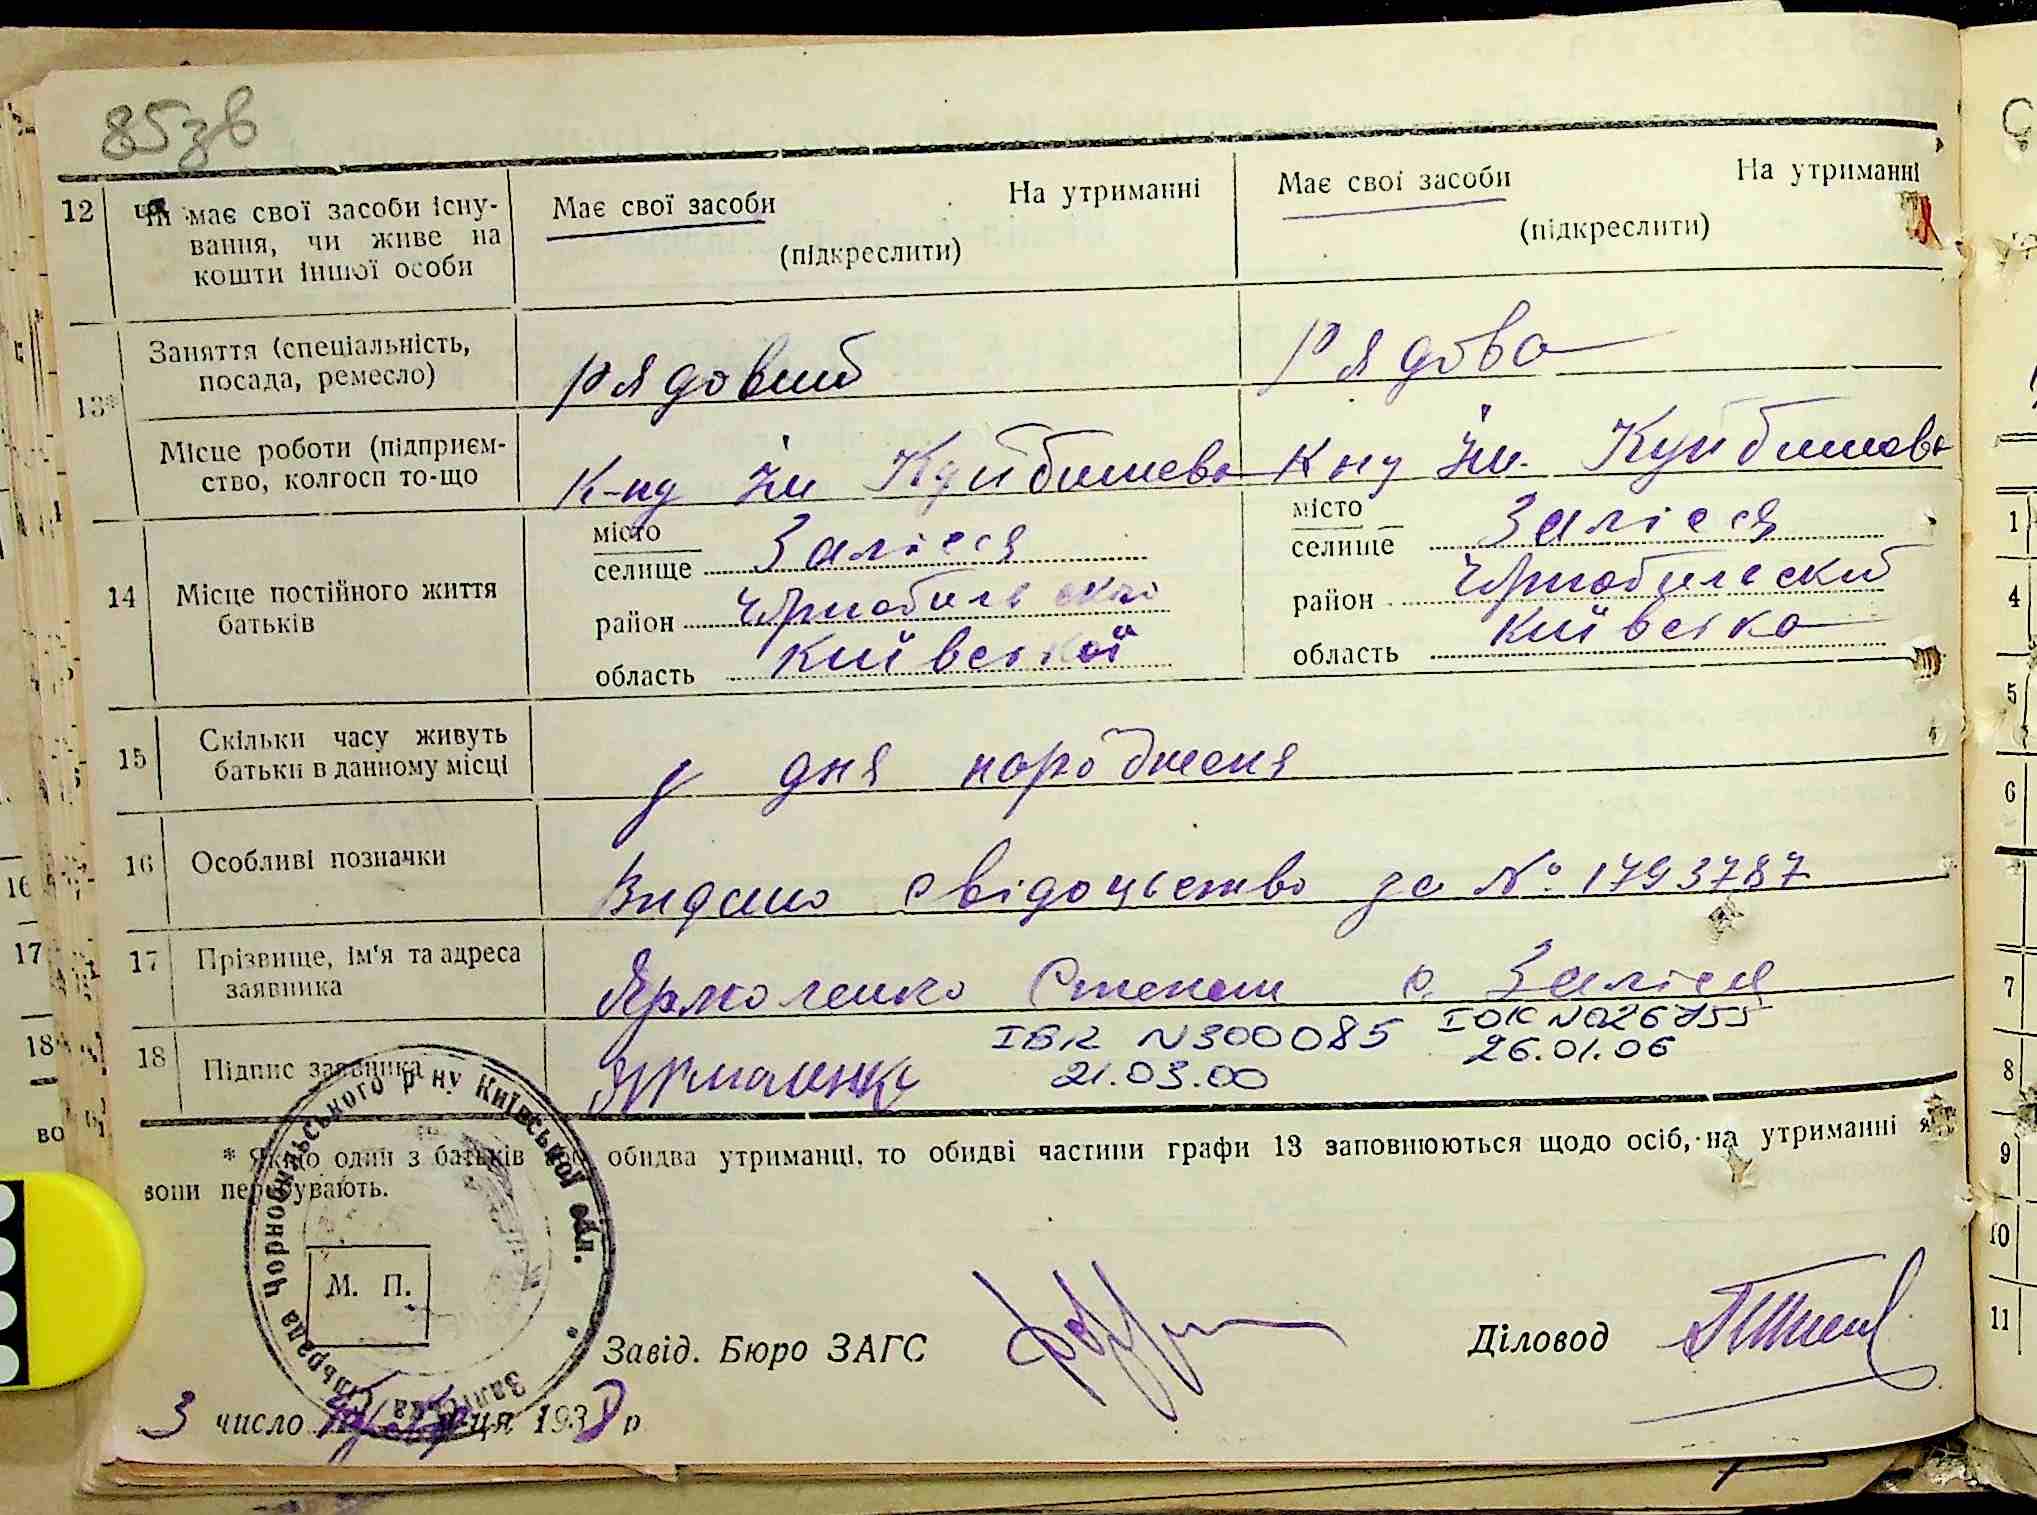 85зв
12 Чи має свої засоби існу-
вання, чи живе на
кошти іншої особи
Має свої засоби На утриманні
(підкреслити)
Має свої засоби На утриманні
(підкреслити)
13*
Заняття (спеціальність,
посада, ремесло)
рядовий
Рядова
Місце роботи (підприєм-
ство, колгосп то-що
К-пд Їм Куйбишева
Їм. Куйбишева
14 Місце постійного життя
батьків
місто
селище Залісся
район
область Київської
місто
селище Залісся
район Чорнобильский
область Київська
15 Скільки часу живуть
батьки в данному місці
у дня народженя
16 Особливі позначки
Видано свідоцьство за № 1793787
17 Прізвище, ім'я та адреса
заявника
Ярмоленко Степан с. Залісся
18 Підпис заявника
Ярмоленко
ІВК N300085
21.03.00
ІОК N026755
26.01.06
* Якщо один з батьків обидва утриманці, то обидві частини графи 13 заповнюються щодо осіб, на утриманні я
вони перебувають.
Сільрада Чорнобильського р-ну Київської обл.
М. П.
Завід. Бюро ЗАГС
Діловод
3 число м-ця 1938 р
16
17
18
во
1
4
5
6
7
8
9
10
11